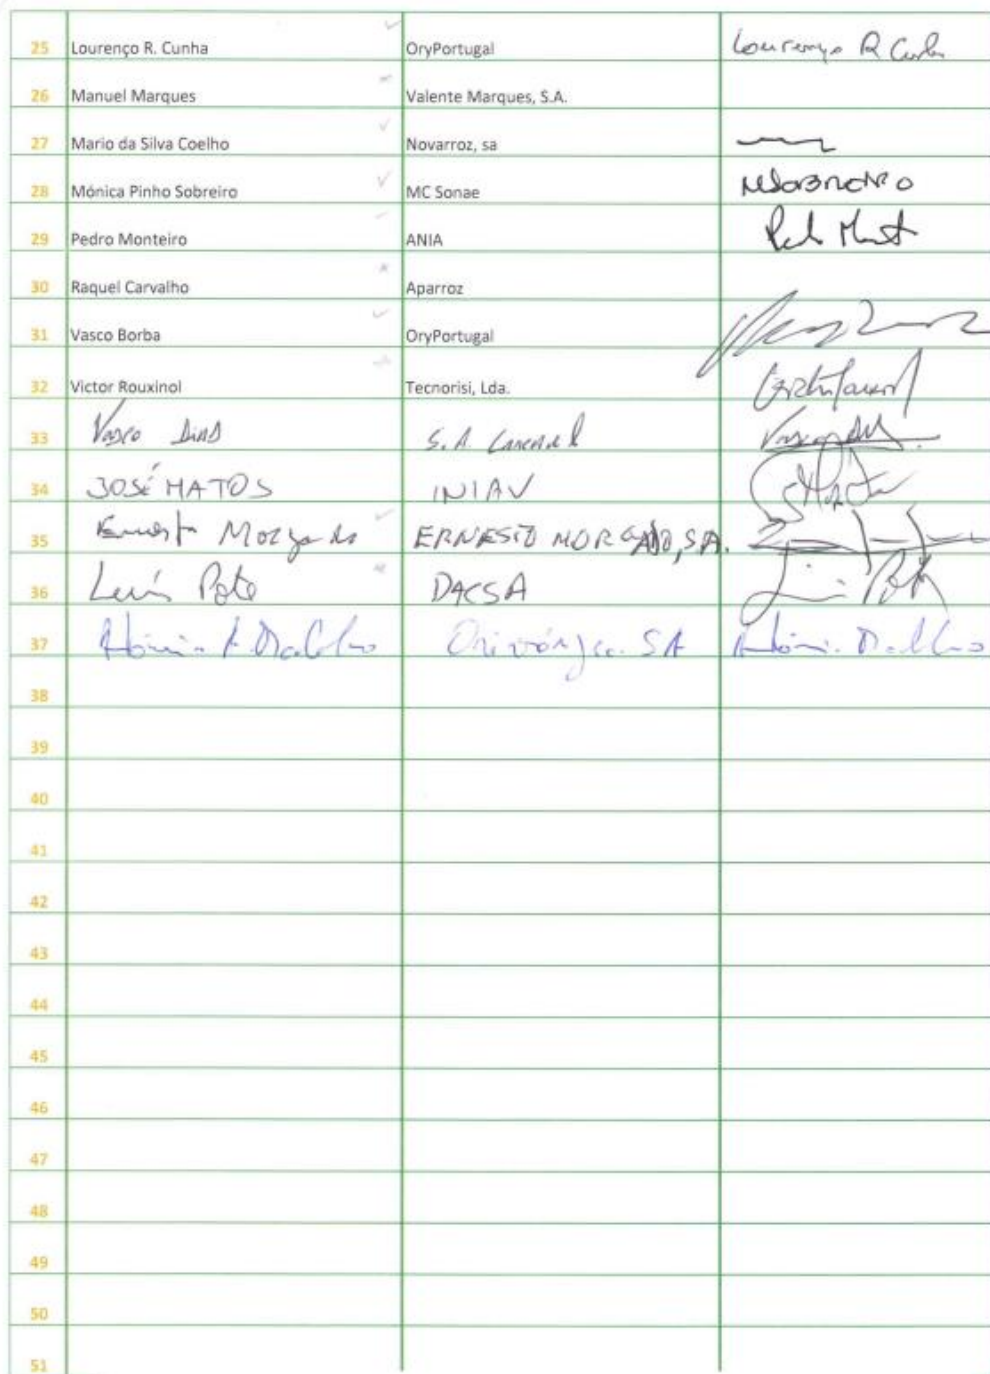 25 Lourenço R. Cunha OryPortugal Lourenço R Cunha
26 Manuel Marques Valente Marques, S.A.
27 Mario da Silva Coelho Novarroz, sa
28 Mónica Pinho Sobreiro MC Sonae
29 Pedro Monteiro ANIA
30 Raquel Carvalho Aparroz
31 Vasco Borba OryPortugal
32 Victor Rouxinol Tecnorisi, Lda.
33 Vasco Dias S.A.
34 JOSÉ MATOS INIAV
35 Ernesto Morgado ERNESTO MORGADO, SA.
36 Luís Pote DACSA
37 SA
38
39
40
41
42
43
44
45
46
47
48
49
50
51